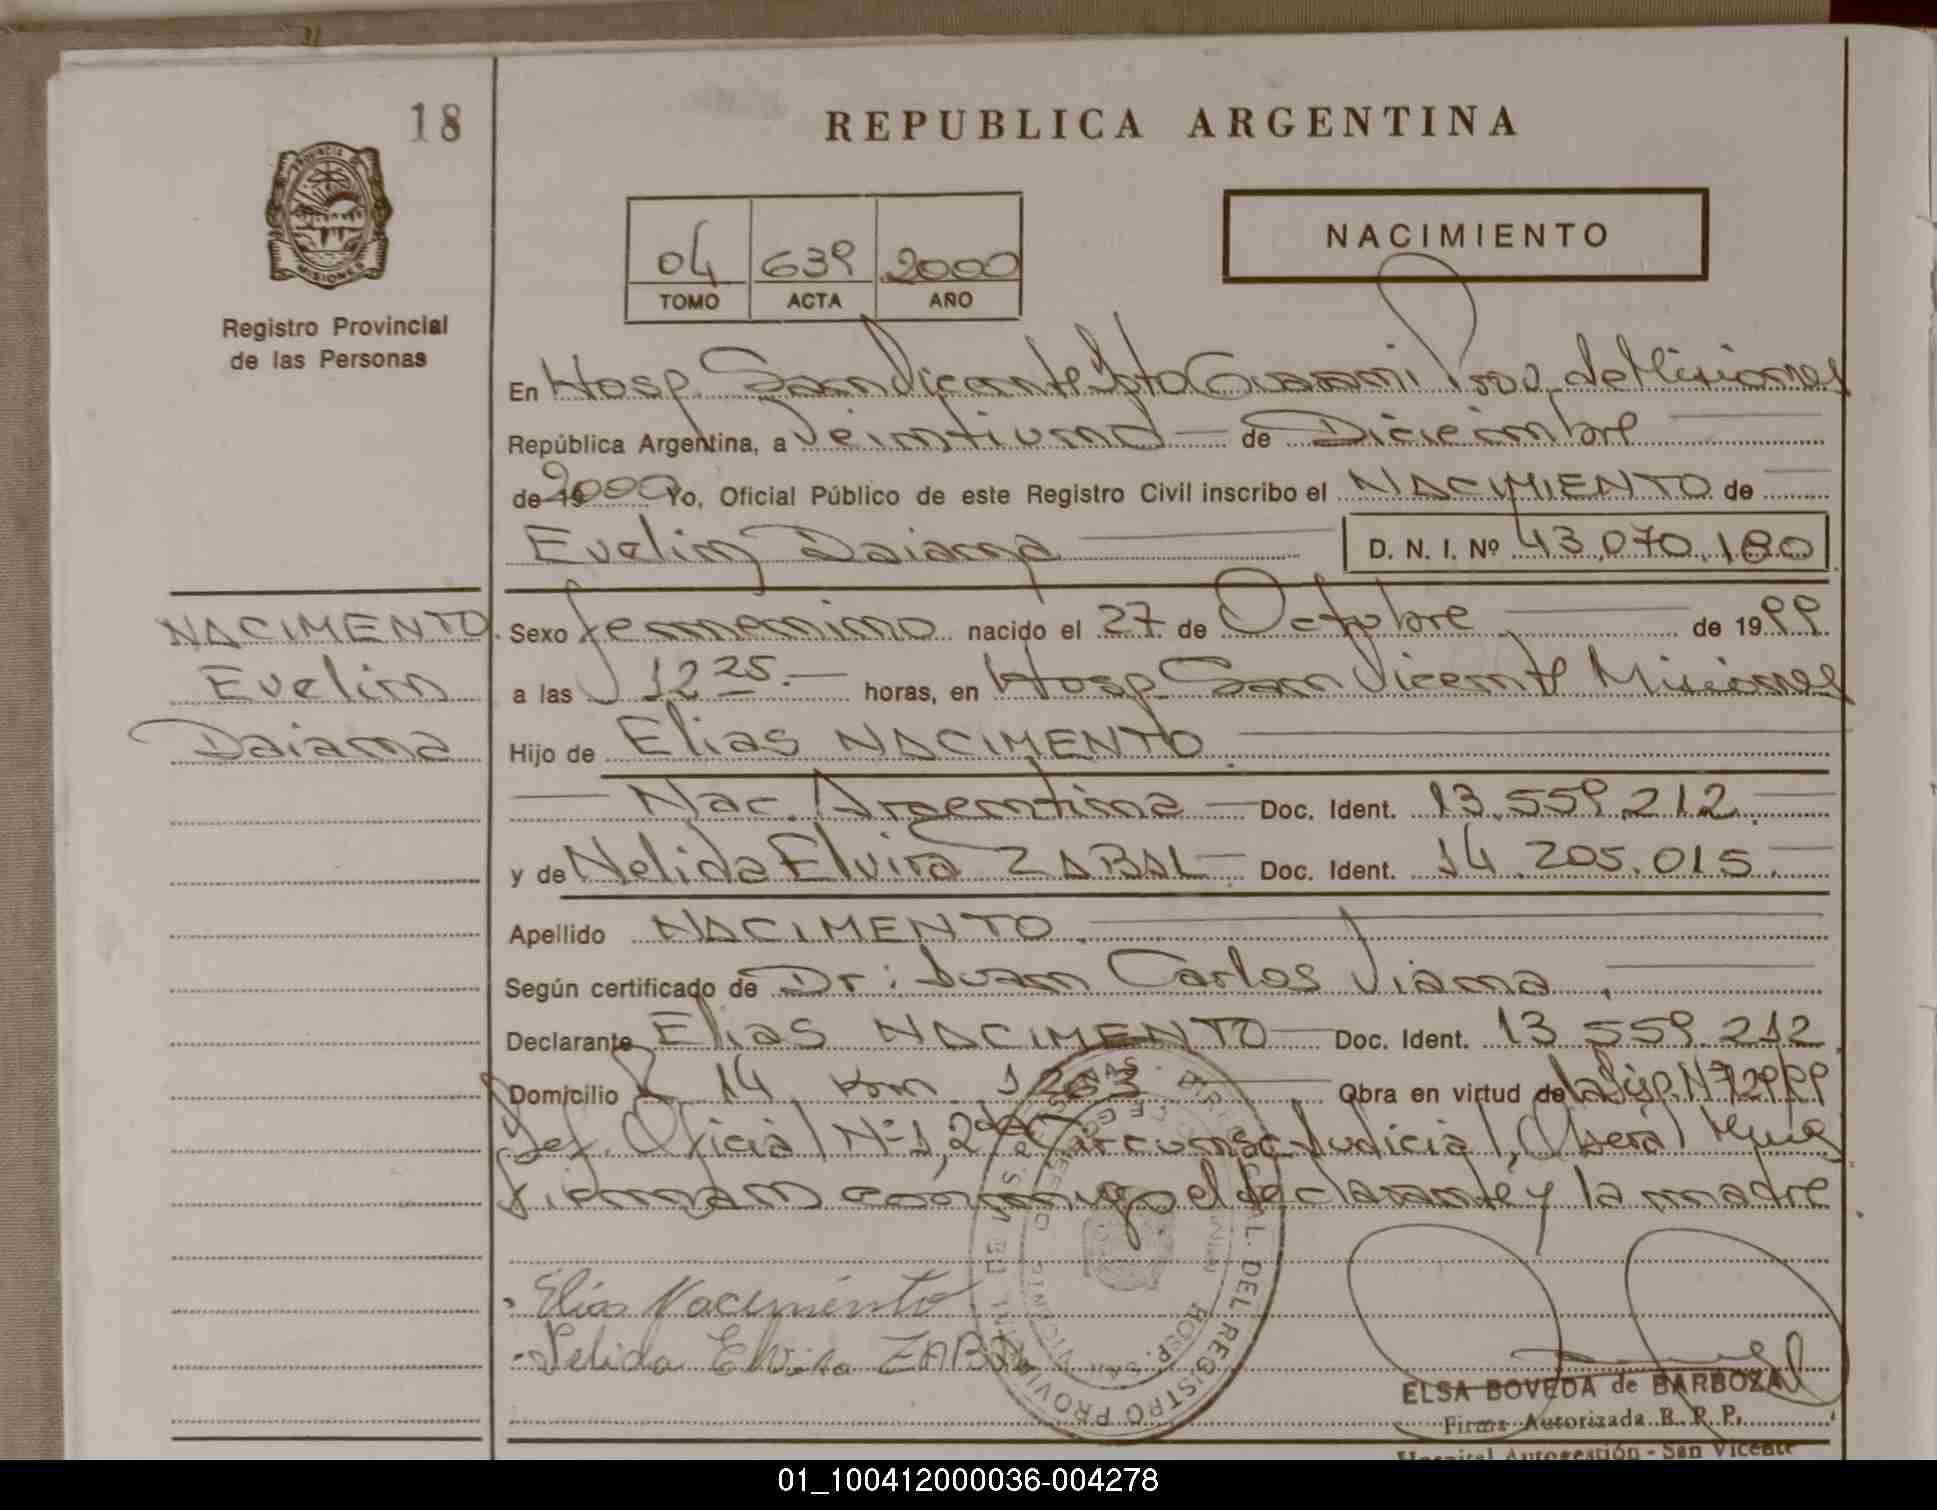 18
REPUBLICA ARGENTINA
PROVINCIA DE
MISIONES
Registro Provincial
de las Personas
04 639 2000
TOMO ACTA AÑO
NACIMIENTO
En Hosp. San Vicente Dpto Guarani Prov. de Misiones
República Argentina, a Veintiuno de Diciembre
de 19 2000 Yo, Oficial Público de este Registro Civil inscribo el NACIMIENTO de
Evelin Daiana D. N. I. Nº 43.070.180
NACIMENTO
Evelin
Daiana
Sexo femenino nacido el 27 de Octubre de 1999
a las 12 25.- horas, en Hosp. San Vicente Misiones
Hijo de Elias NACIMENTO
Nac. Argentina Doc. Ident. 13.559.212
y de Nelida Elvira ZABAL Doc. Ident. 14.205.015
Apellido NACIMENTO
Según certificado de Dr: Juan Carlos Viana
Declarante Elias NACIMENTO Doc. Ident. 13.559.212
Domicilio 14 Km 1203 Obra en virtud de
Def. Oficial Nº 1, 2da Circunsc. Judicial, Oberá
firman conmigo el declarante y la madre
Elias Nacimento
Nelida Elvira ZABAL
DEL REGISTRO PROVINCIAL
HOSP. SAN VICENTE
ELSA BOVEDA de BARBOZA
Firma Autorizada R. P. P.
Hospital Autogestión - San Vicente
01_100412000036-004278